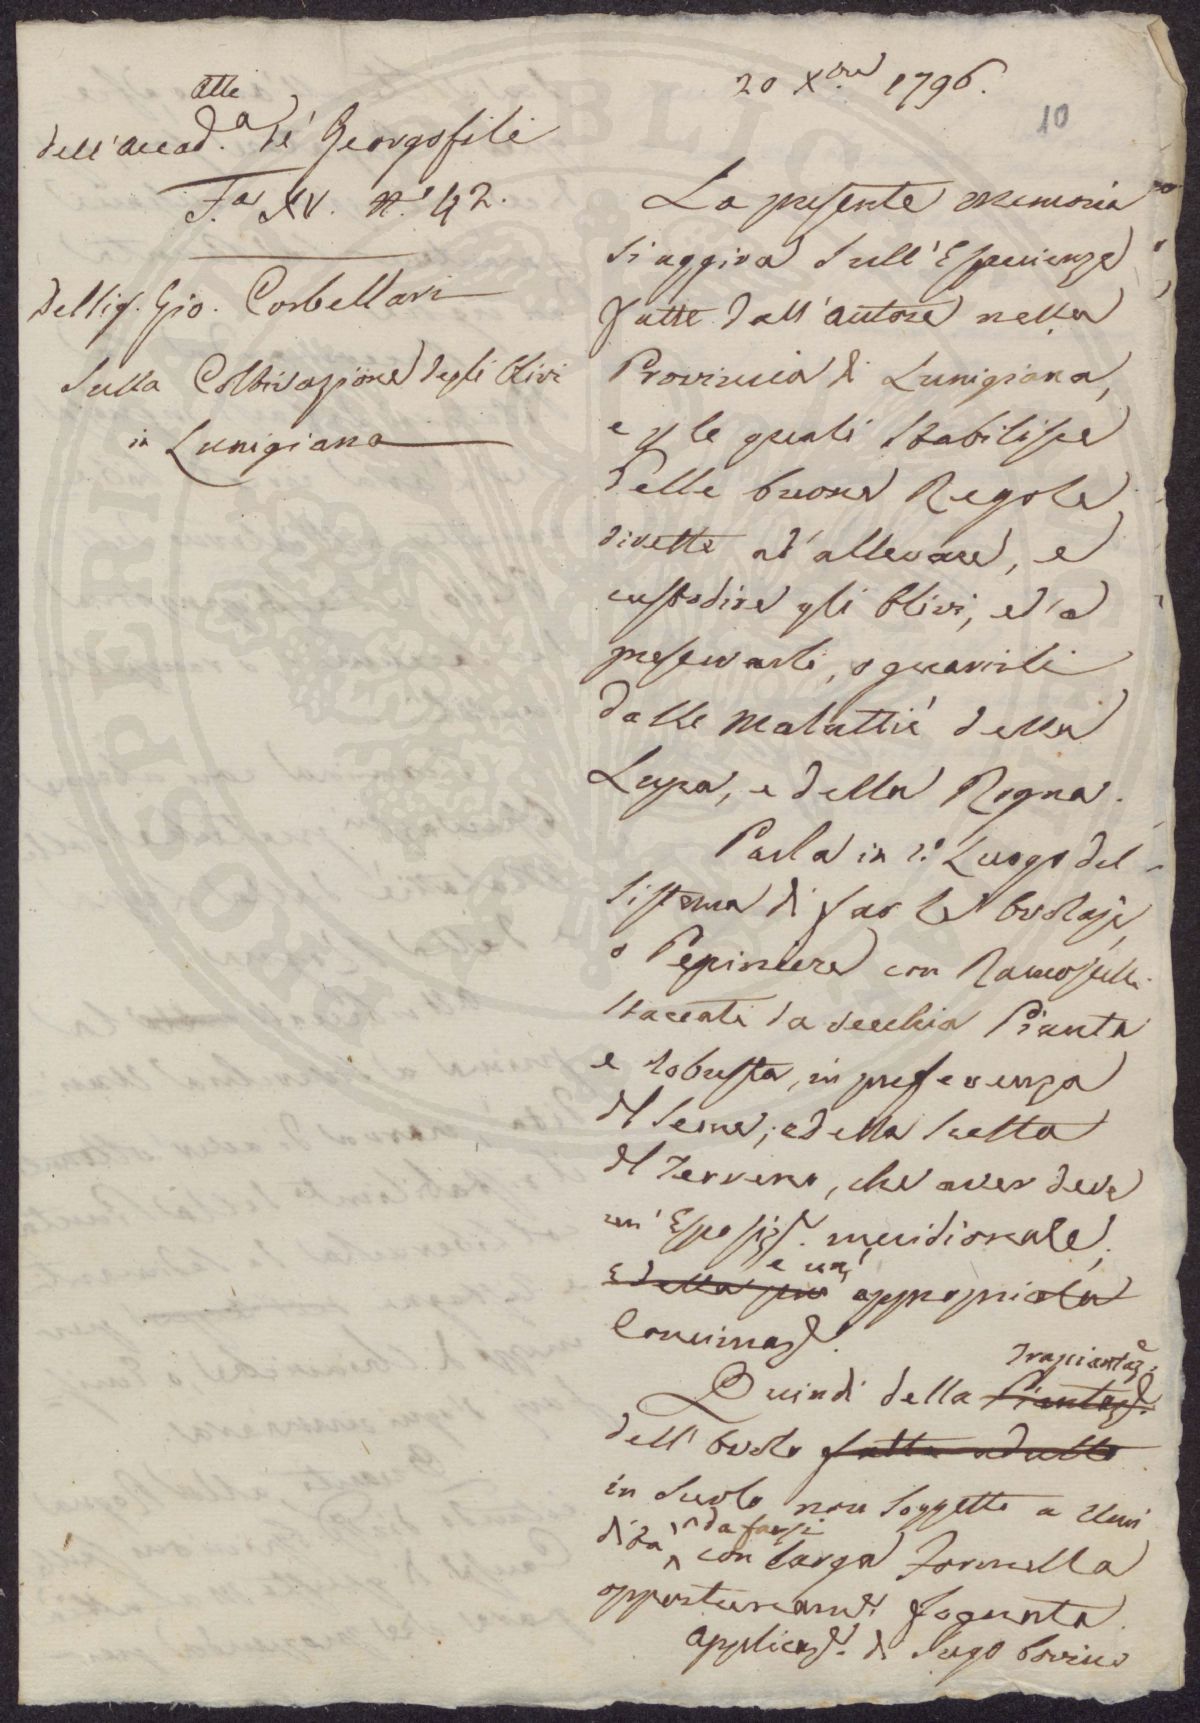 Atti
dell'Accad.a de' Georgofili
F.a XV. N.o 42.
Del Sig. Gio. Corbellani
Sulla Coltivazione degli Olivi
in Lunigiana
20 Xbre 1796.
10
La presente memoria
si aggira sull'Esperienze
fatte dall'Autore nella
Provincia di Lunigiana,
e p le quali stabilisce
delle buone Regole
dirette ad allevare, e
custodire gli Olivi, ed a
preservarli, o guarirli
dalle Malattie della
Lupa, e della Rogna.
Parla in 1.o Luogo del
sistema di far le Ovolaje,
o Pepiniere con Ramoscelli
staccati da vecchia Pianta
e robusta, in preferenza
del seme; e della scelta
del Terreno, che aver deve
un'Esposize. meridionale,
e un'
Edella più appropriata
Concimaze.
Trapiantaz.e
Quindi della Piantaze.
dell'Ovolo fatto adulto
in Suolo non soggetto a Umi
dità da farsi con larga Formella
opportunam.e fognata
applicaze. di Sugo bovino